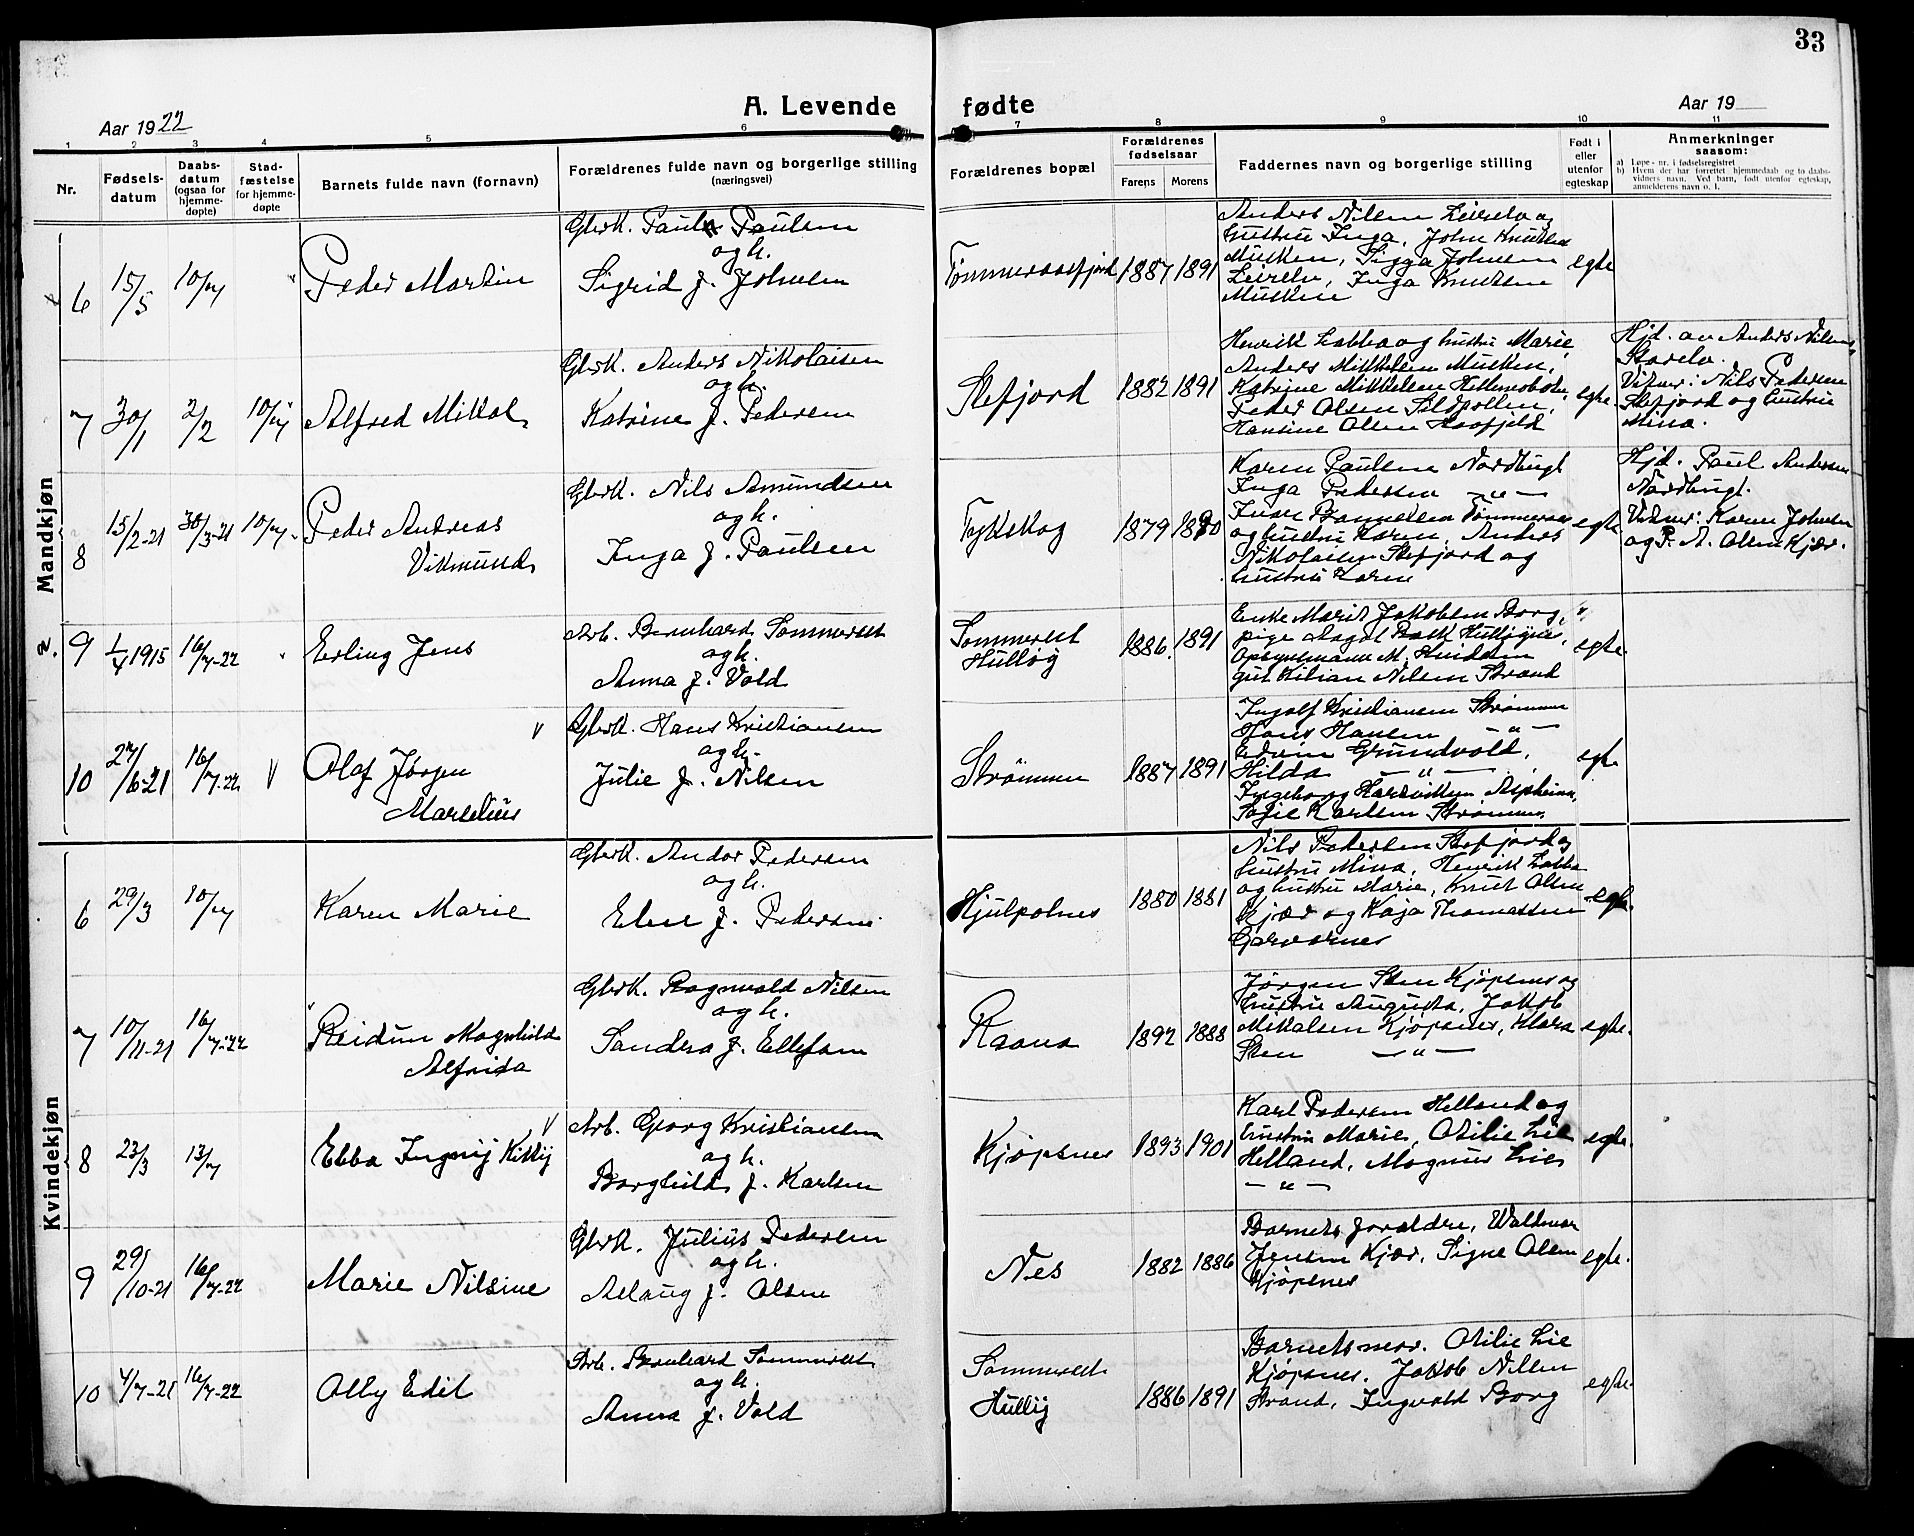 33
A. Levende fødte
Aar 1922
Aar 19
1 2 3 4 5 6 7 8 9 10 11
Nr.
Fødsels-
datum
Daabs-
datum
(ogsaa for
hjemme-
døpte)
Stad-
fæstelse
for hjemme-
døpte
Barnets fulde navn (fornavn)
Forældrenes fulde navn og borgerlige stilling
(næringsvei)
Forældrenes bopæl
Forældrenes
fødselsaar
Farens Morens
Faddernes navn og borgerlige stilling
Født i
eller
utenfor
egteskap
Anmerkninger
saasom:
a) Løpe-nr. i fødselsregistret
b) Hvem der har forrettet hjemmedaab og to daabs-
vidners navn. Ved barn, født utenfor egteskap,
anmelderens navn o. l.
Mandkjøn
6
15/5
10/4
Peder Martin
Gbrk. Paul Paulsen
og h.
Sigrid f. Johnsen
Tømmeraasfjord
1887 1891
Anders Nilsen Leirelv og
hustru Inga, John Knutsen
Musken, Sigga Johnsen
Leirelv, Inga Knutsen
Musken
egte
7
30/1
2/2
10/4
Alfred Mikal
Gbrk. Anders Nikolaisen
og h.
Katrine f. Pedersen
Stefjord
1882 1891
Henrik Labba og hustru Marie,
Anders Mikkelsen Musken,
Katrine Mikkelsen Hellemobotn,
Peder Olsen Sildpollen,
Hansine Olsen
egte.
Hjd. av Anders Nilsen,
Storelv.
Vidner: Nils Pedersen
Stefjord og hustru
Mina.
8
15/2-21
30/3-21
10/4
Peder Andreas
Vikmund
Gbrk. Nils Amundsen
og h.
Inga f. Paulsen
Tykskog
1879 1890
Karen Paulsen Nordbugt
Inga Pedersen —"—
og hustru Karen, Anders
Nikolaisen Stefjord og
hustru Karen
egte
Hjd. Paul Andersen
Nordbugt.
Vidner: Karen Johnsen
og P. A. Olsen Kjær.
9
1/4 1915
16/7-22
Erling Jens
Arb. Bernhard Sommerset
og h.
Anna f. Vold
Sommerset
Hulløy
1886. 1891
Enke Marit Jakobsen Borg,
pige Magot Bakk
Opsynsmann M.
gut Kilian Nilsen Strand
egte.
10
27/6-21
16/7-22
V
Olaf Jørgen
Marselius
Gbrk. Hans Kristiansen
og h.
Julie f. Nilsen
Strømmen
1887 1891
Ingolf Kristiansen Strømmen
Hans Hansen —"—
Edvin Grundvold,
Hilda —"—,
Ingeborg Hartvigsen
Sofie Karlsen Strømmen.
egte
Kvindekjøn
6
29/3
10/4
Karen Marie
Gbrk. Andor Pedersen
og h.
Elen f. Pedersen
Hjulpolnes
1880 1881
Nils Pedersen Stefjord og
hustru Mina, Henrik Labba
og hustru Marie, Knut Olsen
Kjær og Kaja Thomassen
egte.
7
10/11-21
16/7-22
Reidun Magnhild
Alfrida
Gbrk. Ragnvald Nilsen
og h.
Sandra f. Ellefsen
Raana
1892 1888
Jørgen Sten Kjøpsnes og
hustru Augusta, Jakob
Mikalsen Kjøpsnes, Klara
Sten —"—
egte.
8
23/3
13/7
Ebba Kitty
Arb. Georg Kristiansen
og h.
Borghild f. Karlsen
Kjøpsnes
1893 1901
Karl Pedersen Helland og
hustru Marie, Otilie Lie
Helland, Magnus Lie
—"—
egte.
9
29/10-21
16/7-22
Marie Nilsine
Gbrk. Julius Pedersen
og h.
Aslaug f. Olsen
Nes
1882 1886
Barnets forældre, Waldmar
Jensen Kjær, Signe Olsen
Kjøpsnes
egte.
10
4/7-21
16/7-22
Olly Edit
Arb. Bernhard Sommerset
og h.
Anna f. Vold
Sommerset
Hulløy
1886 1891
Barnets mor. Otilie Lie
Kjøpsnes, Jakob Nilsen
Strand, Ingvald Borg
egte.